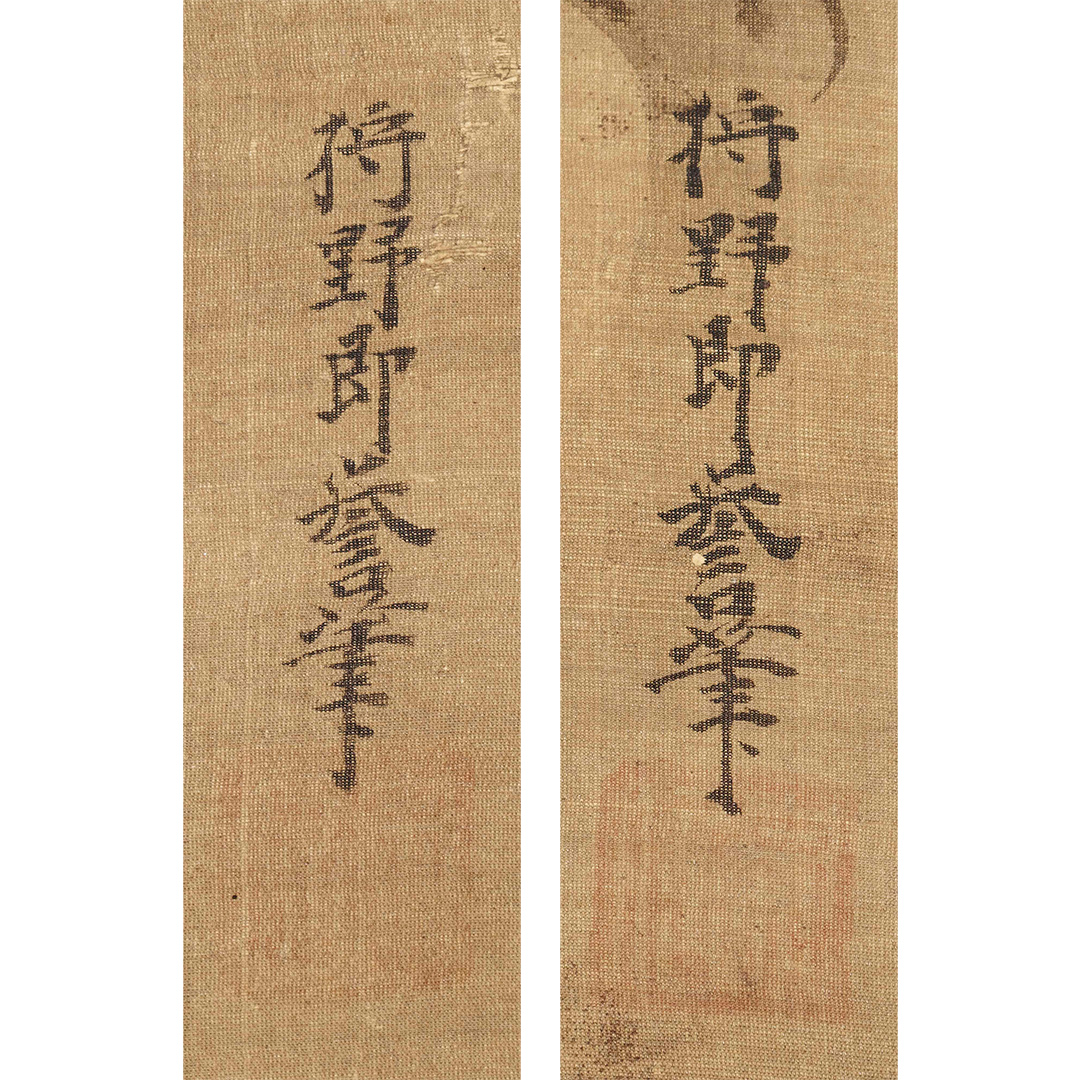 狩野即誉筆
狩野即誉筆